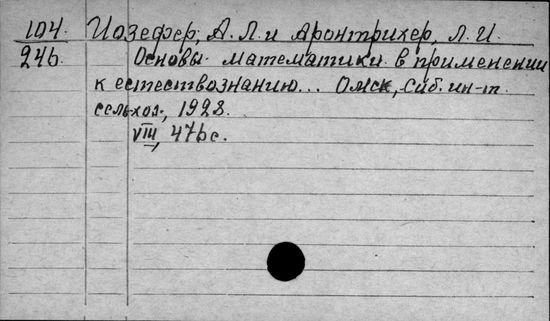 104. Иозефер, А. Л. и Аронтрихер, Л. И.
246. Основы математики в применении
к естествознанию... Омск, Сиб. ин-т.
сель-хоз., 1928.
VIII, 476 с.